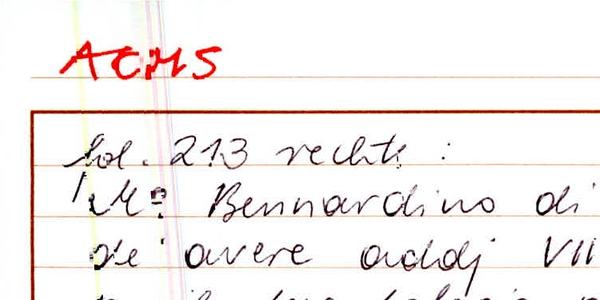 ACMS
fol. 213 rechts :
Mº Bennardino di
de avere addj VII